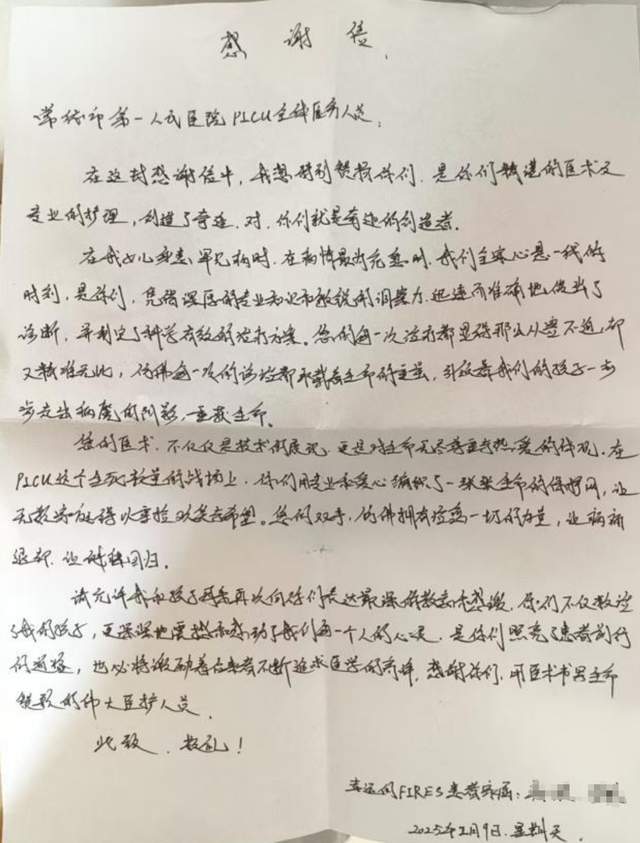 感谢信
常德市第一人民医院PICU全体医务人员:
在这封感谢信中,我想特别赞扬你们,是你们精湛的医术及
专业的护理,创造了奇迹。对,你们就是奇迹的创造者。
在我女儿患罕见病时,在病情最为危急时,我们全家心悬一线的
时刻,是你们,凭借深厚的专业知识和敏锐的洞察力,迅速而准确地做出了
诊断,并制定了科学有效的治疗方案。您的每一次治疗都显得那么从容不迫,却
又精准无比,仿佛每一次的诊治都承载着生命的重量,引领着我们的孩子一步
步走出病魔的阴影,重获生命。
您的医术,不仅仅是技术的展现,更是对生命无尽尊重与热爱的体现。在
PICU这个生死较量的战场上,你们用专业和爱心编织了一张张生命的保护网,让
无数家庭得以重拾欢笑与希望。您的双手,仿佛拥有治愈一切的力量,让病痛
退却,让健康回归。
请允许我和孩子再次向你们表达最深的敬意和感激,你们不仅救治
了我的孩子,更深深地震撼和感动了我们每一个人的心灵。是你们照亮了患者前行
的道路,也必将激励着后来者不断追求医学的高峰,感谢你们,用医术书写生命
赞歌的伟大医护人员。
此致,敬礼!
幸运的FIRES患者家属:
2025年2月9日.星期天